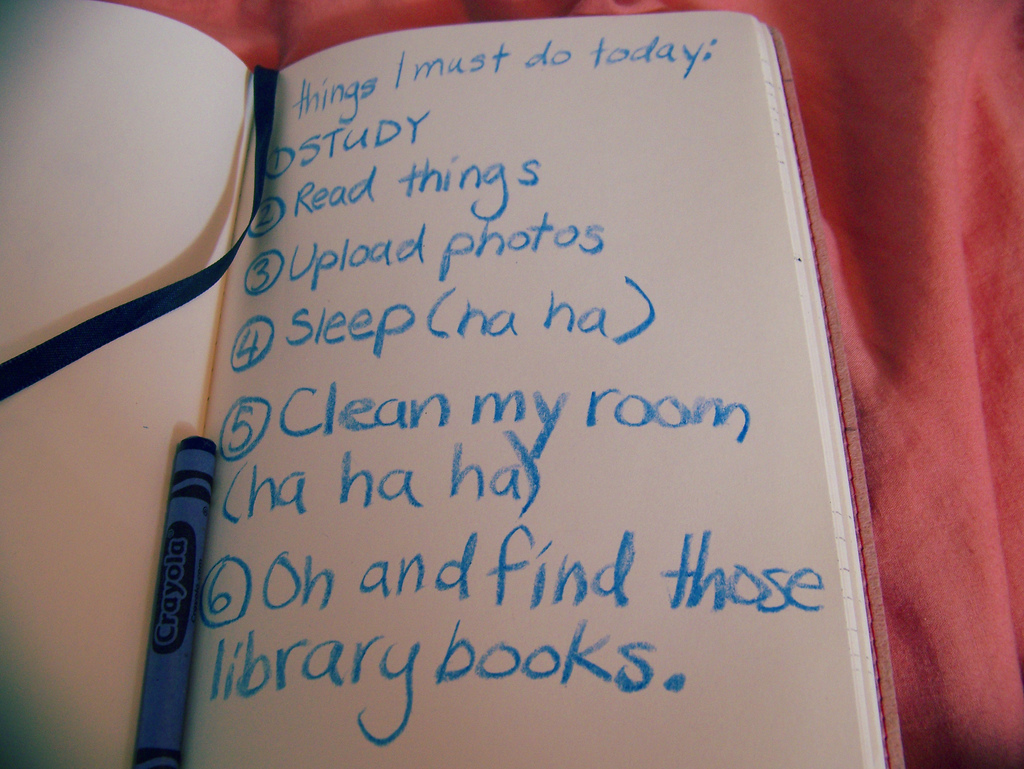 things I must do today:
① STUDY
② Read things
③ Upload photos
④ Sleep (ha ha)
⑤ Clean my room
(ha ha ha)
⑥ Oh and find those
library books.
Crayola